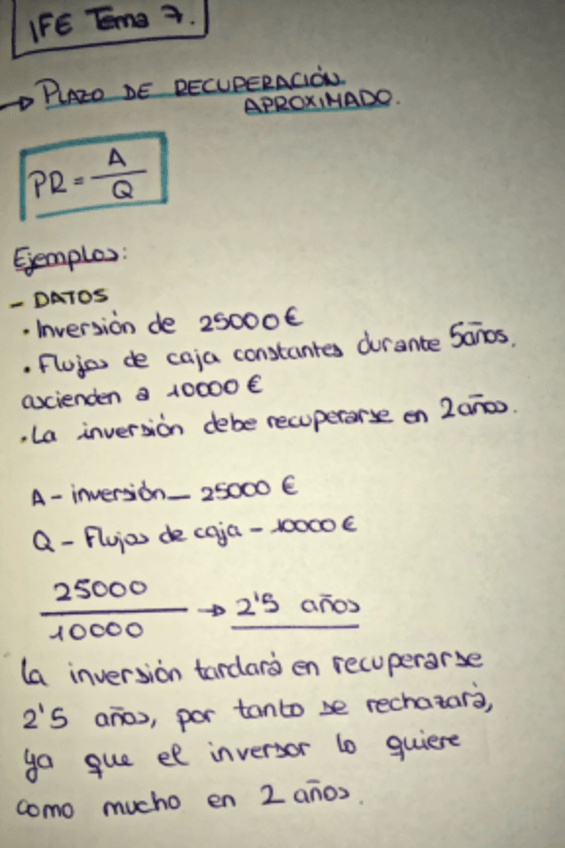 IFE Tema 7.
→ PLAZO DE RECUPERACIÓN
APROXIMADO.
PR = A / Q
Ejemplos:
- DATOS
· Inversión de 25000 €
· Flujos de caja constantes durante 5 años.
ascienden a 10000 €
· La inversión debe recuperarse en 2 años.
A - inversión - 25000 €
Q - Flujos de caja - 10000 €
25000
10000 → 2'5 años
La inversión tardará en recuperarse
2'5 años, por tanto se rechazará,
ya que el inversor lo quiere
como mucho en 2 años.